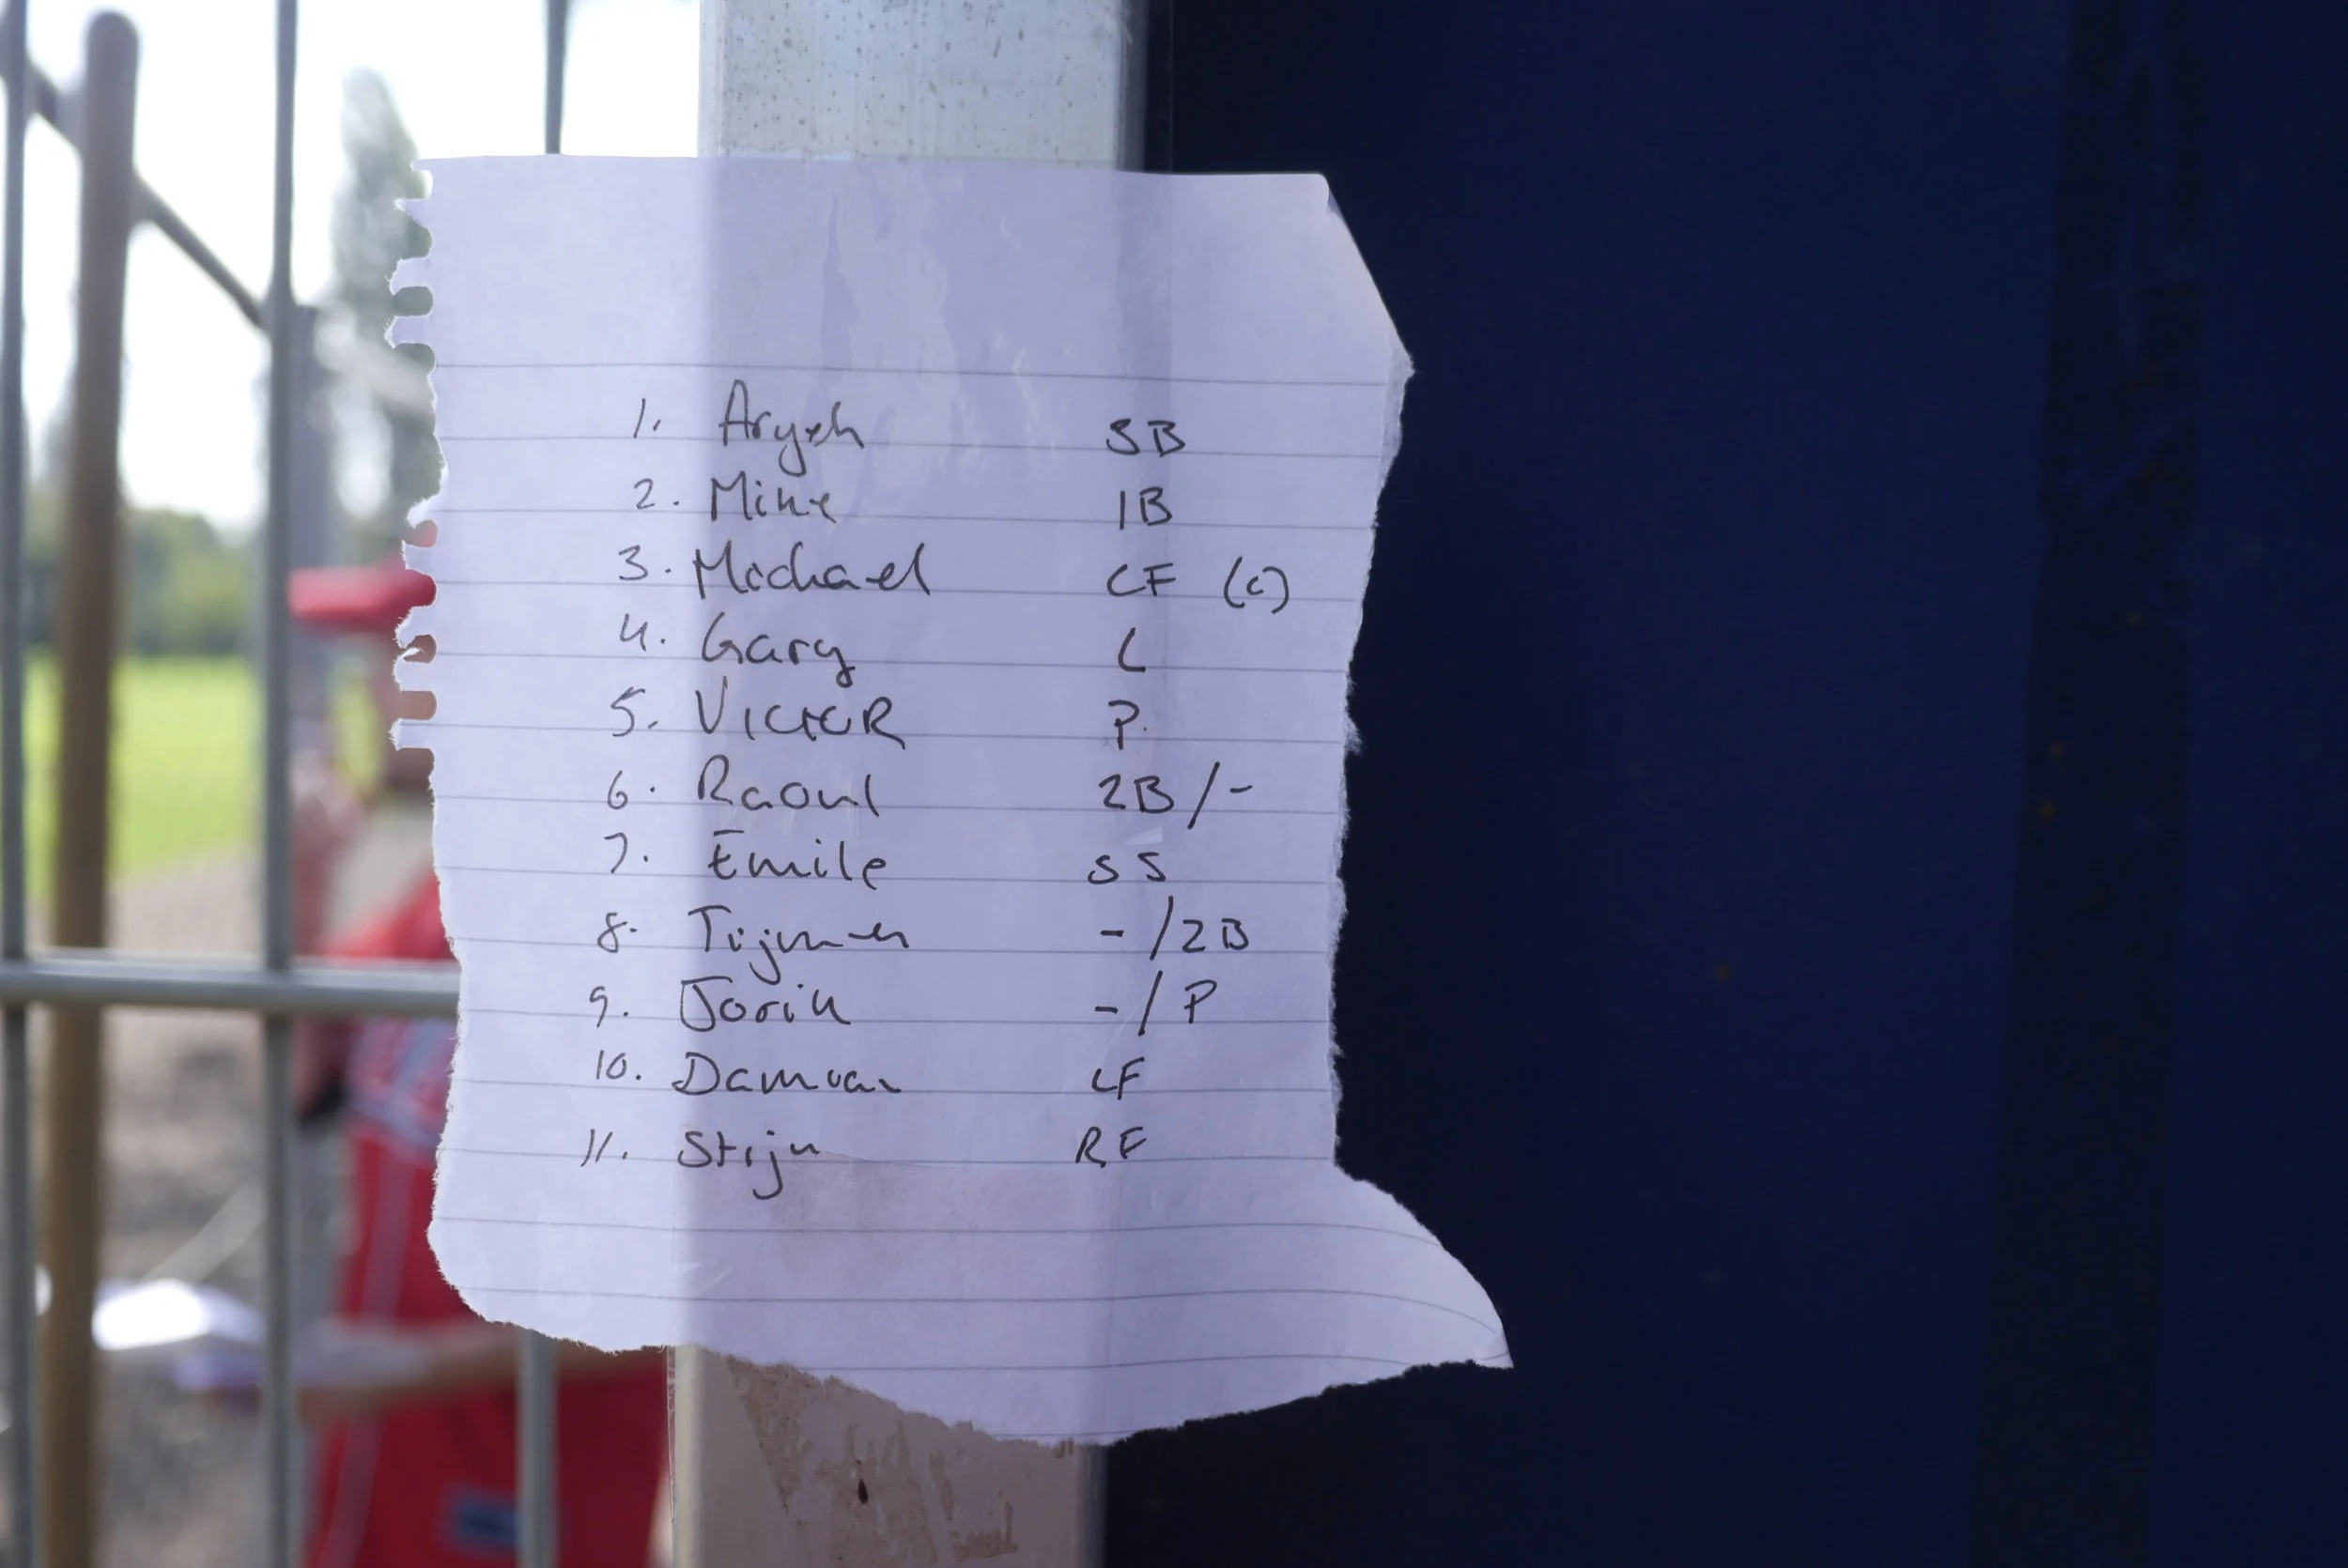 1. Aryeh 3B
2. Mike 1B
3. Michael CF (C)
4. Gary C
5. VICTOR P.
6. Raoul 2B/-
7. Emile SS
8. Tijmen -/2B
9. Jorik -/P
10. LF
11. Stijn RF